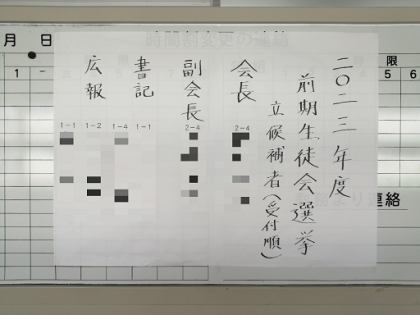 二〇二三年度
前期生徒会選挙
立候補者(受付順)
会長
2-4
副会長
2-4
書記
1-1
広報
1-4
1-2
1-1
月 日
1
限
5 6
時間割変更の連絡
連絡